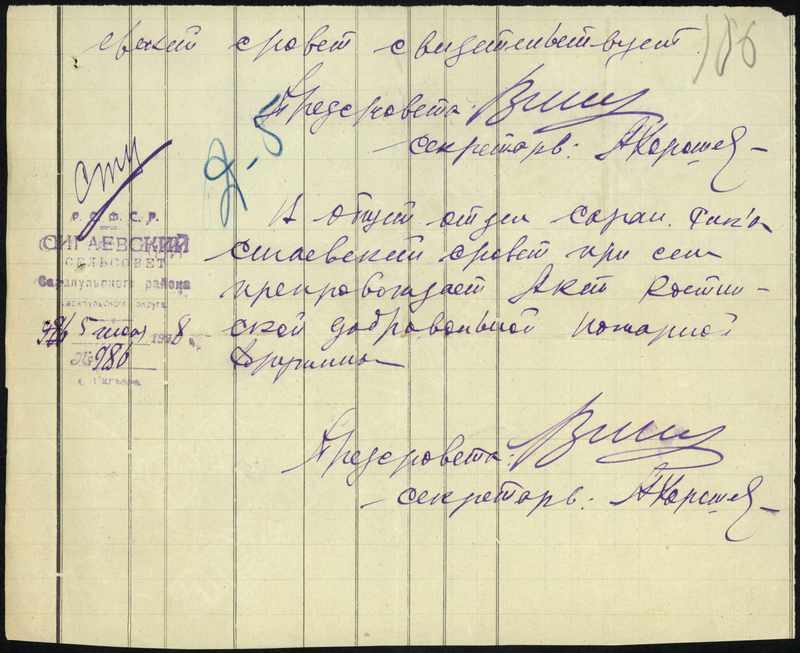 186
евский сровет свидетельствует.
Предсровета:
секретарь: АХорошев
Д-5
Р. С. Ф. С. Р.
СИГАЕВСКИЙ
СЕЛЬСОВЕТ
Сарапульского района
Сарапульского округа
5 июня 1928
№ 986
с. Сигаево
В общий отдел сарап. Рик'а
сигаевский сровет при сем
препровождает Акт Костин-
ской добровольной пожарной
дружины
Предсровета:
секретарь: АХорошев